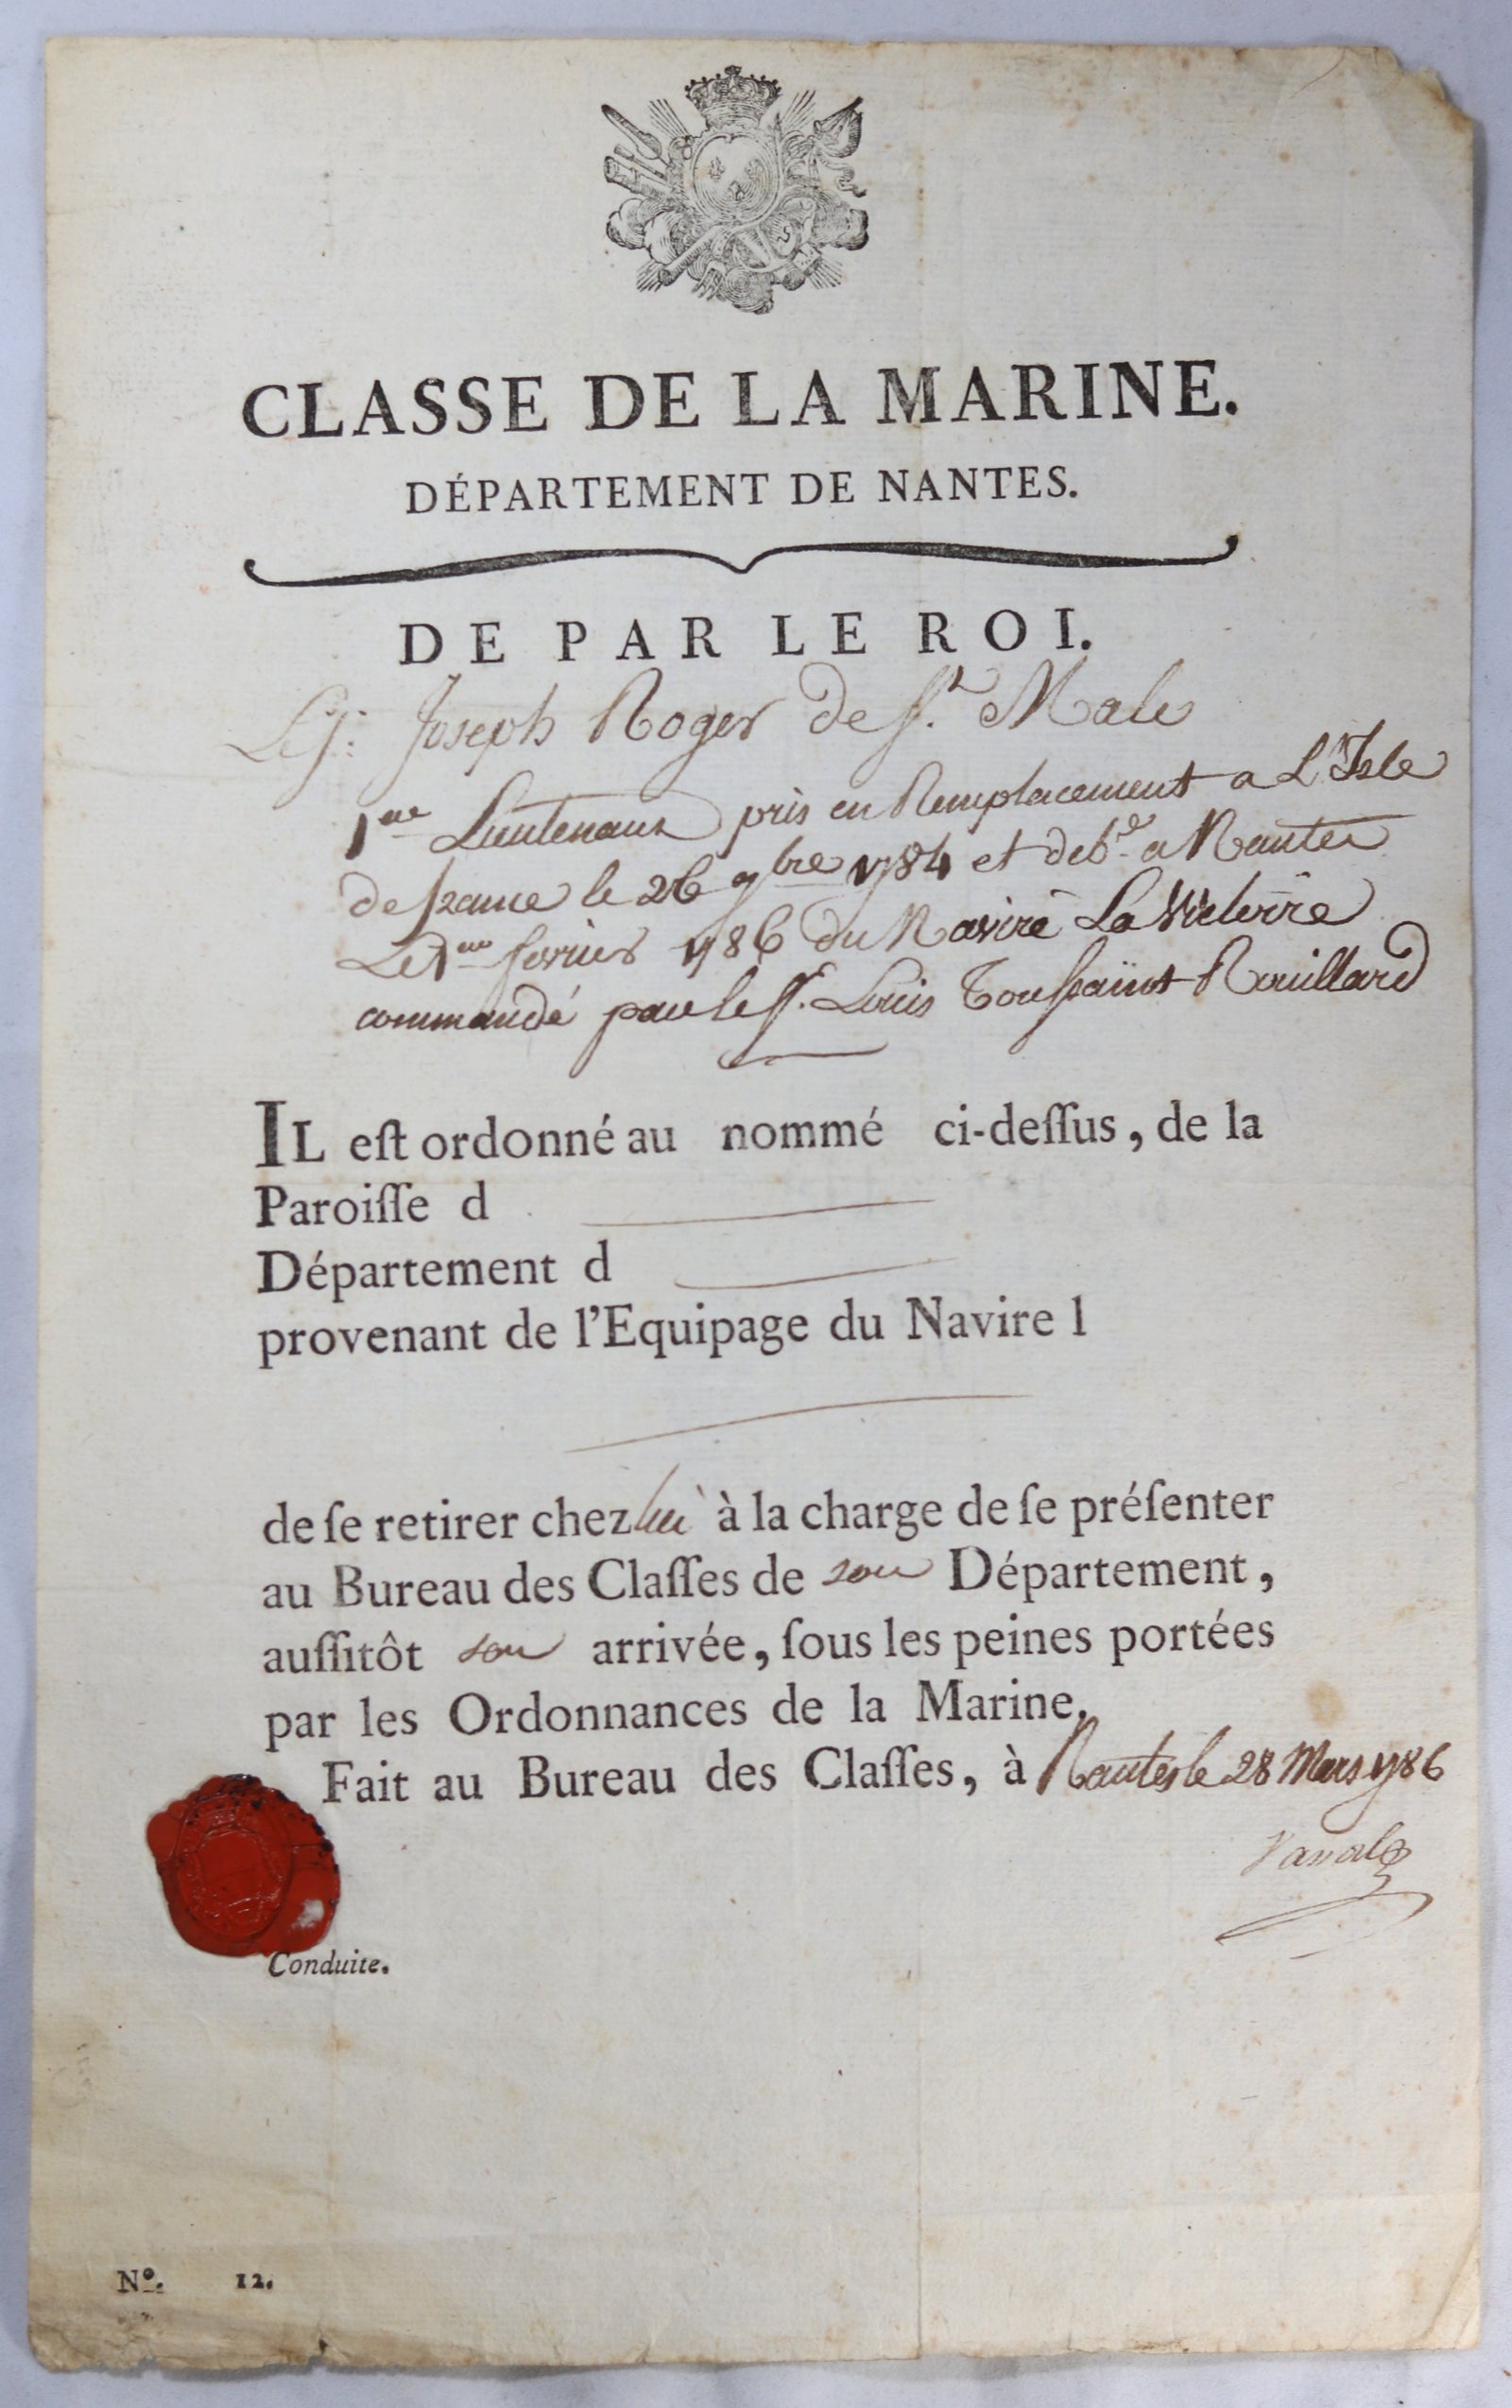 CLASSE DE LA MARINE.
DÉPARTEMENT DE NANTES.
DE PAR LE ROI.
Le Sr. Joseph Roger de St. Malo
1er Lieutenant pris en Remplacement a L'Isle
de france le 26 9bre 1784 et deb.é a Nantes
Le 1er fevrier 1786 du Navire La Victoire
commandé par le Sr. Louis Toussaint Rouillard
IL eſt ordonné au nommé ci-deſſus, de la
Paroiſſe d
Département d
provenant de l'Equipage du Navire l
de ſe retirer chez lui à la charge de ſe préſenter
au Bureau des Claſſes de son Département,
auſſitôt son arrivée, ſous les peines portées
par les Ordonnances de la Marine.
Fait au Bureau des Claſſes, à Nantes le 28 Mars 1786
Conduite.
Nº. 12.